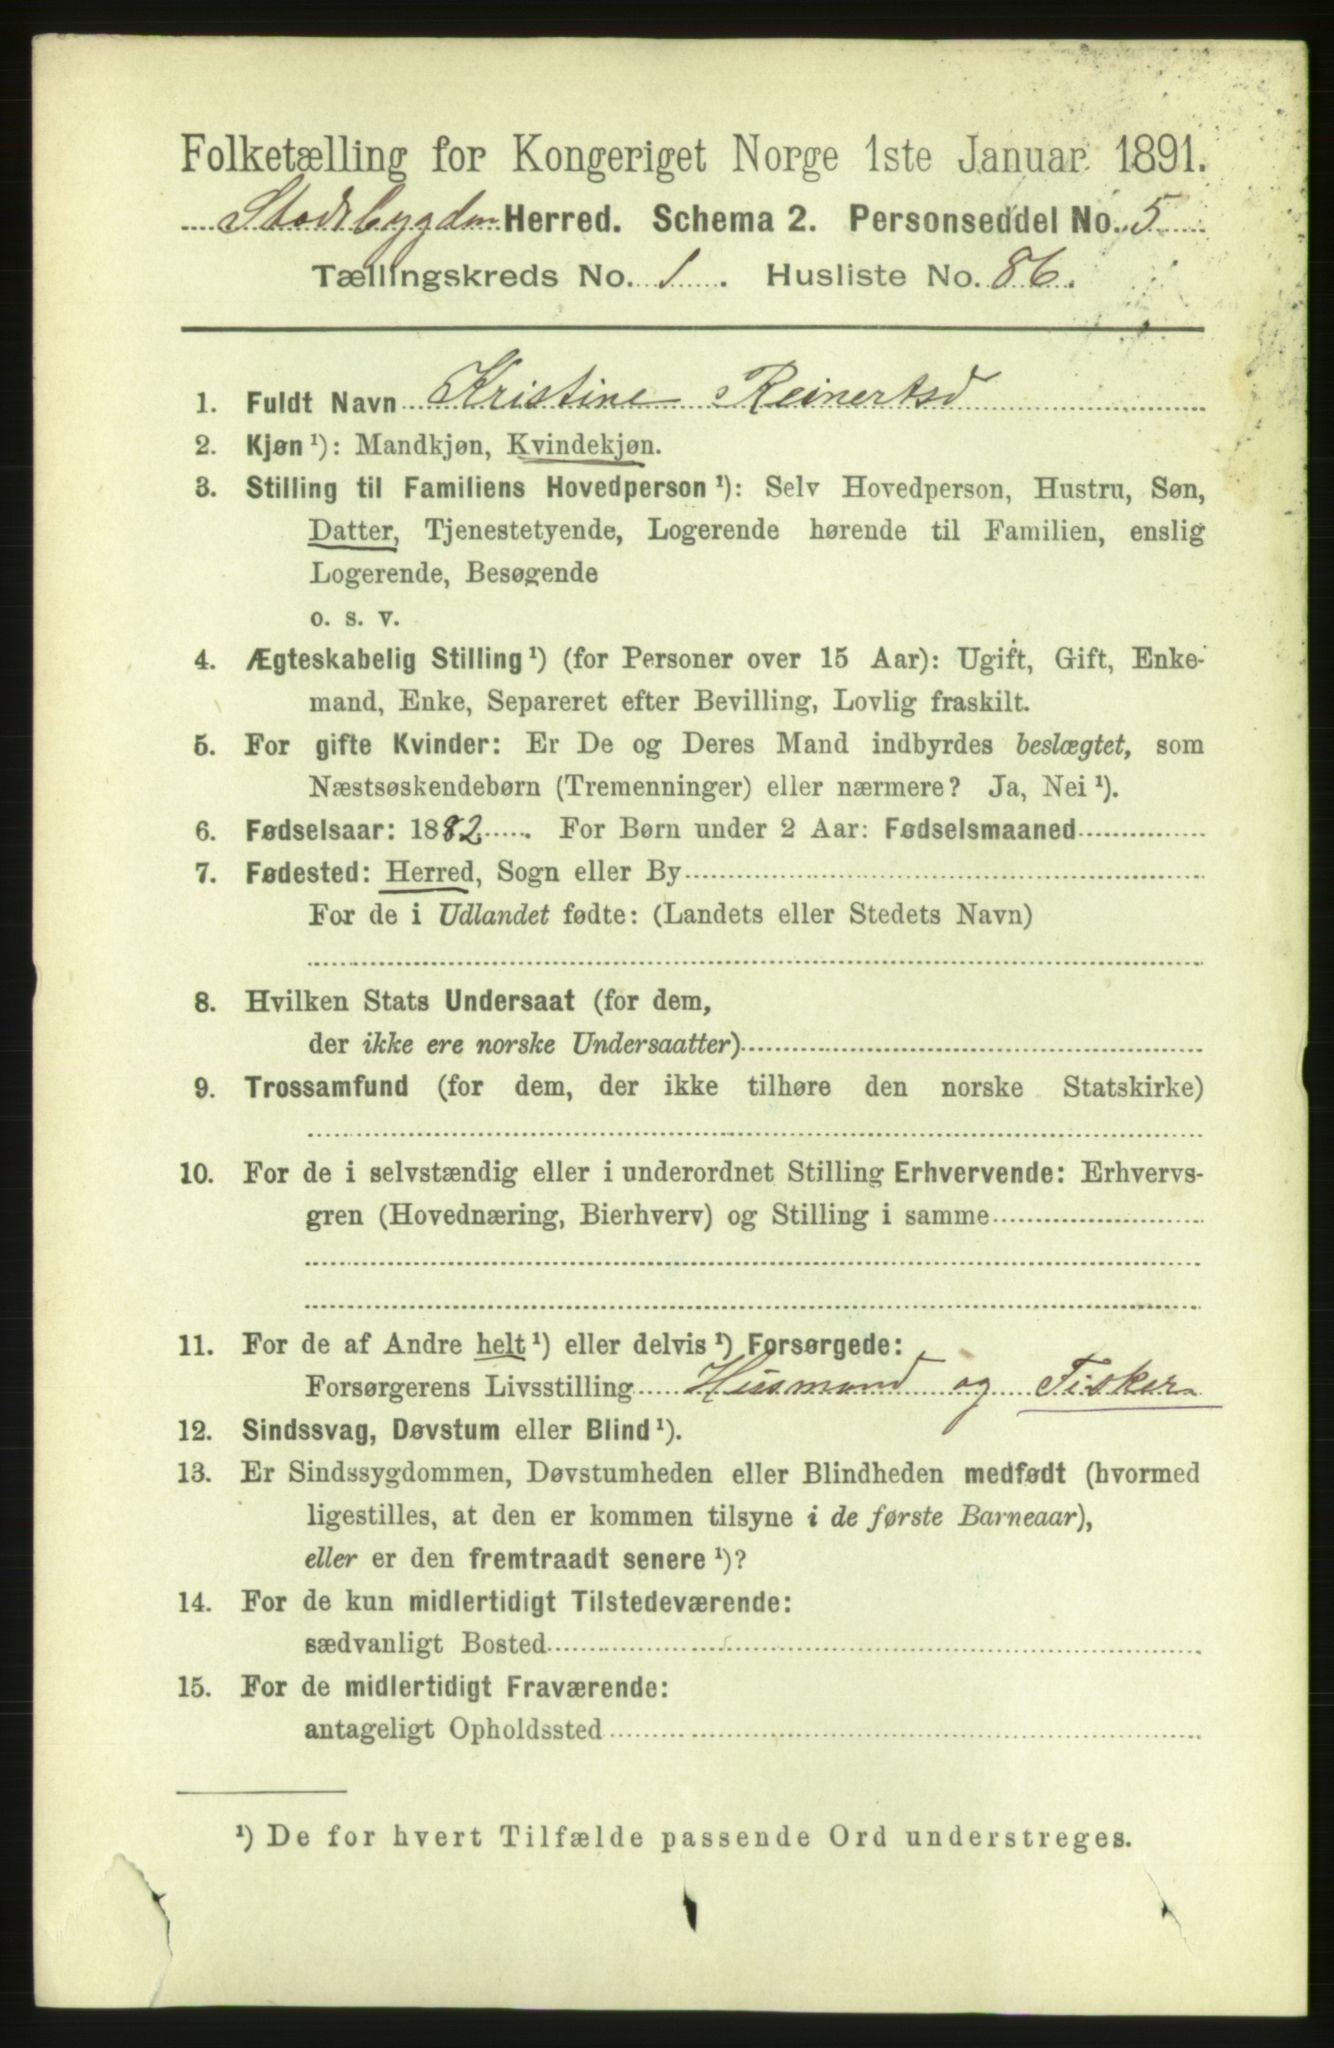 Folketælling for Kongeriget Norge 1ste Januar 1891.
Stadsbygden Herred. Schema 2. Personseddel No. 5
Tællingskreds No. 1. Husliste No. 86.
1. Fuldt Navn Kristine Reinertsd
2. Kjøn ¹): Mandkjøn, Kvindekjøn.
3. Stilling til Familiens Hovedperson ¹): Selv Hovedperson, Hustru, Søn,
Datter, Tjenestetyende, Logerende hørende til Familien, enslig
Logerende, Besøgende
o. s. v.
4. Ægteskabelig Stilling ¹) (for Personer over 15 Aar): Ugift, Gift, Enke-
mand, Enke, Separeret efter Bevilling, Lovlig fraskilt.
5. For gifte Kvinder: Er De og Deres Mand indbyrdes beslægtet, som
Næstsøskendebørn (Tremenninger) eller nærmere? Ja, Nei ¹).
6. Fødselsaar: 1882. For Børn under 2 Aar: Fødselsmaaned
7. Fødested: Herred, Sogn eller By
For de i Udlandet fødte: (Landets eller Stedets Navn)
8. Hvilken Stats Undersaat (for dem,
der ikke ere norske Undersaatter)
9. Trossamfund (for dem, der ikke tilhøre den norske Statskirke)
10. For de i selvstændig eller i underordnet Stilling Erhvervende: Erhvervs-
gren (Hovednæring, Bierhverv) og Stilling i samme
11. For de af Andre helt ¹) eller delvis ¹) Forsørgede:
Forsørgerens Livsstilling Husmand og Fisker
12. Sindssvag, Døvstum eller Blind ¹).
13. Er Sindssygdommen, Døvstumheden eller Blindheden medfødt (hvormed
ligestilles, at den er kommen tilsyne i de første Barneaar),
eller er den fremtraadt senere ¹)?
14. For de kun midlertidigt Tilstedeværende:
sædvanligt Bosted
15. For de midlertidigt Fraværende:
antageligt Opholdssted
¹) De for hvert Tilfælde passende Ord understreges.